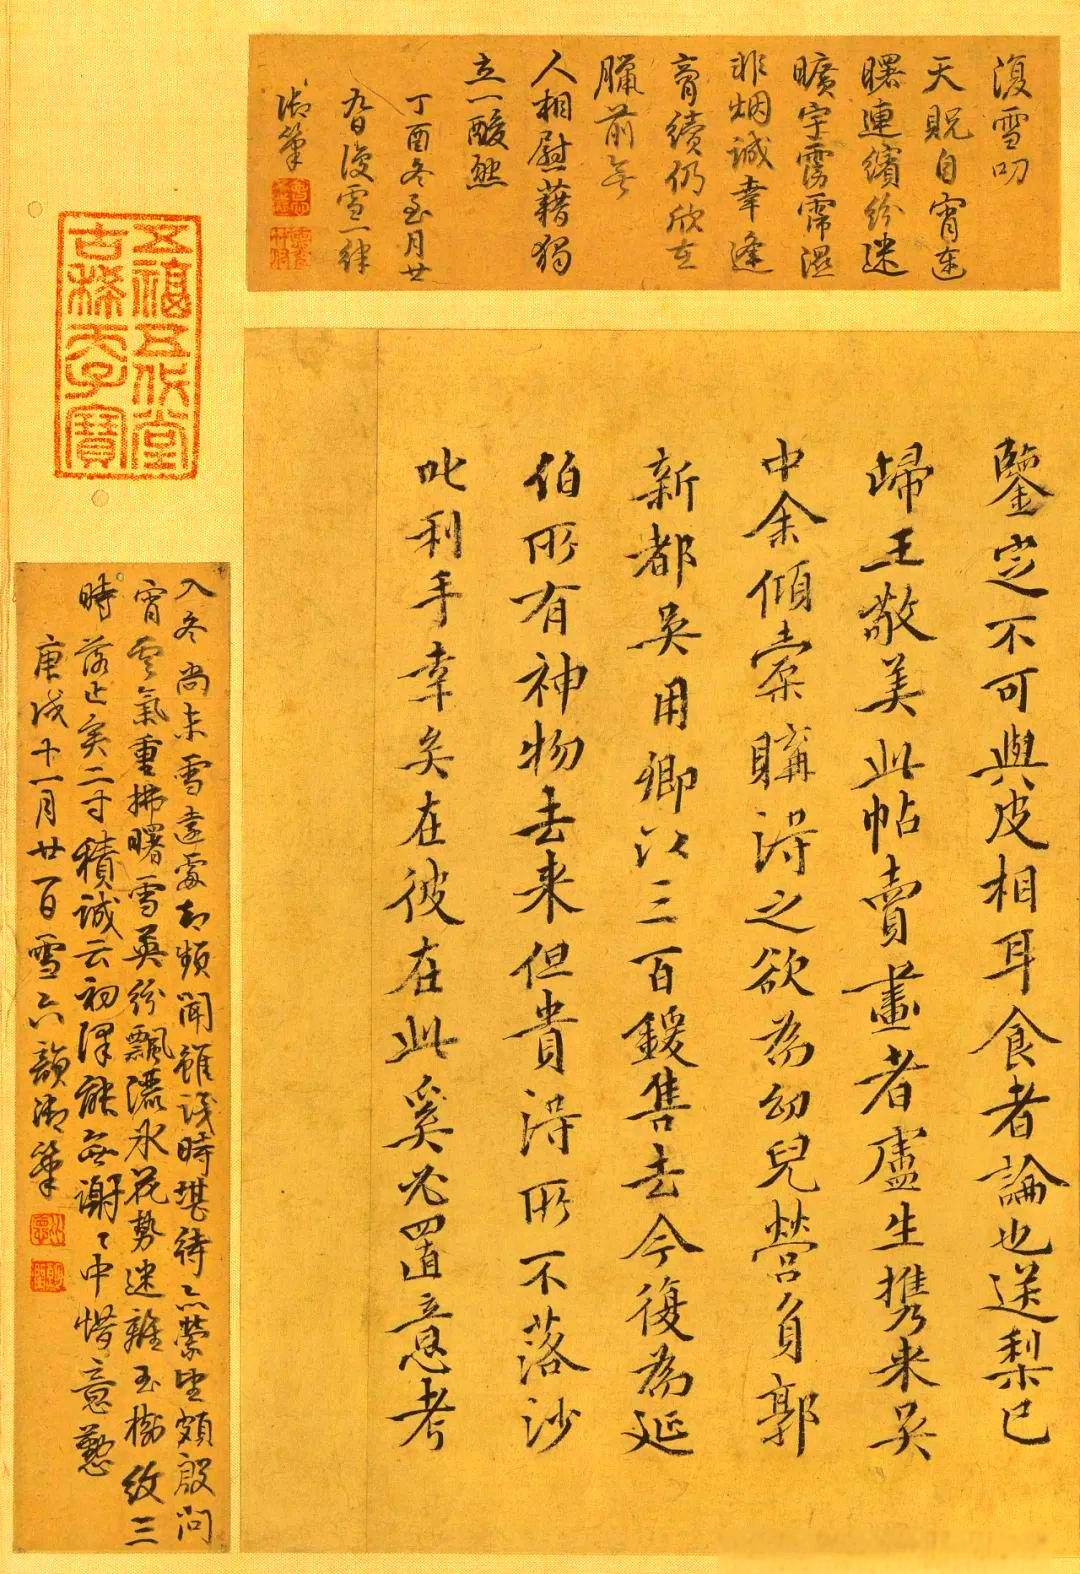 復雪叨
天貺自宵連
曙連繽紛迷
曠宇霧霈濕
非烟誠幸逢
膏續仍欣在
臘前無
人相慰藉獨
立一酸然
丁酉冬至月廿
九日復雪一律
御筆
鑒定不可與皮相耳食者論也送梨已
歸王敬美此帖賣畫者盧生攜來吳
中余傾橐購得之欲為幼兒營負郭
新都吳用卿以三百鍰售去今復為延
伯所有神物去來但貴得所不落沙
叱利手幸矣在彼在此奚必置意考
五福五代堂
古稀天子寶
入冬尚未雪遠處却頻聞雖識時堪待亦縈望頗殷問
宵雲氣重拂曙雪英紛飄灑冰花勢迷離玉樹紋三
時落止矣二寸積誠云初澤能無謝謝中惜意懃
庚戌十一月廿一日雪六韻御筆